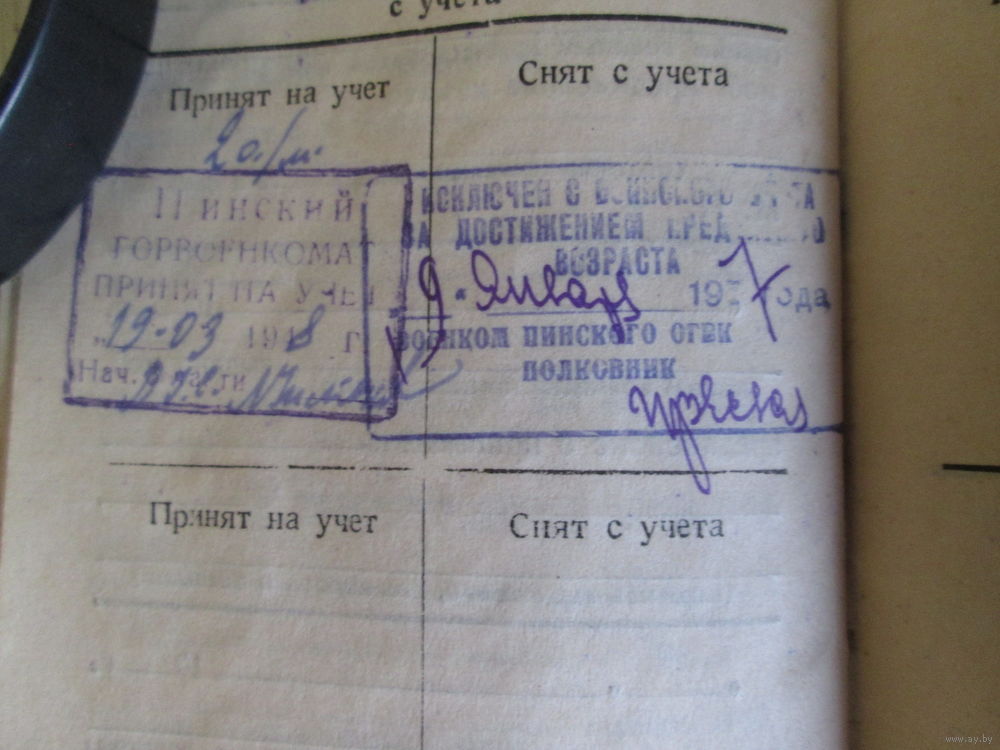 с учета
Принят на учет
Снят с учета
Пинский
ГОРВОЕНКОМАТ
ПРИНЯТ НА УЧЕТ
"19-03 19 8 г
Нач.
ИСКЛЮЧЕН С ВОИНСКОГО
ЗА ДОСТИЖЕНИЕМ ПРЕДЕЛЬНОГО
ВОЗРАСТА
9 " Января 19 7 года
ВОЕНКОМ ПИНСКОГО ОГВК
ПОЛКОВНИК
Принят на учет
Снят с учета
www.ay.by